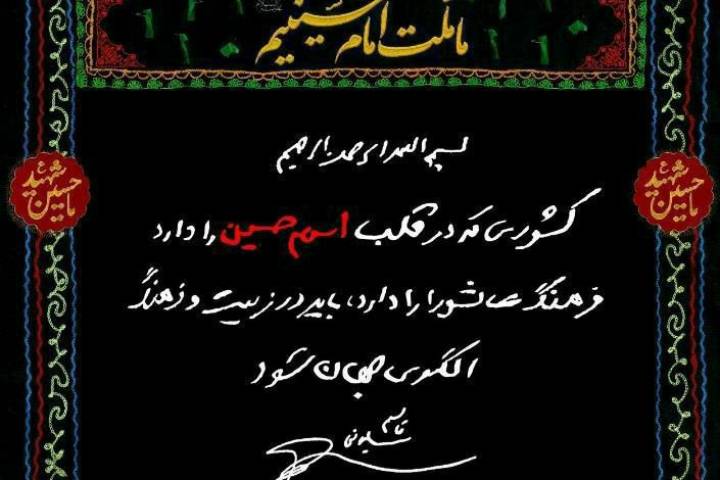 ما ملت امام حسینیم
بسم الله الرحمن الرحیم
کشوری که در قلب اسم حسین را دارد
فرهنگ عاشورا را دارد، باید در تربیت و فرهنگ
الگوی جهان شود
قاسم
سلیمانی
یا حسین شهید
یا حسین شهید